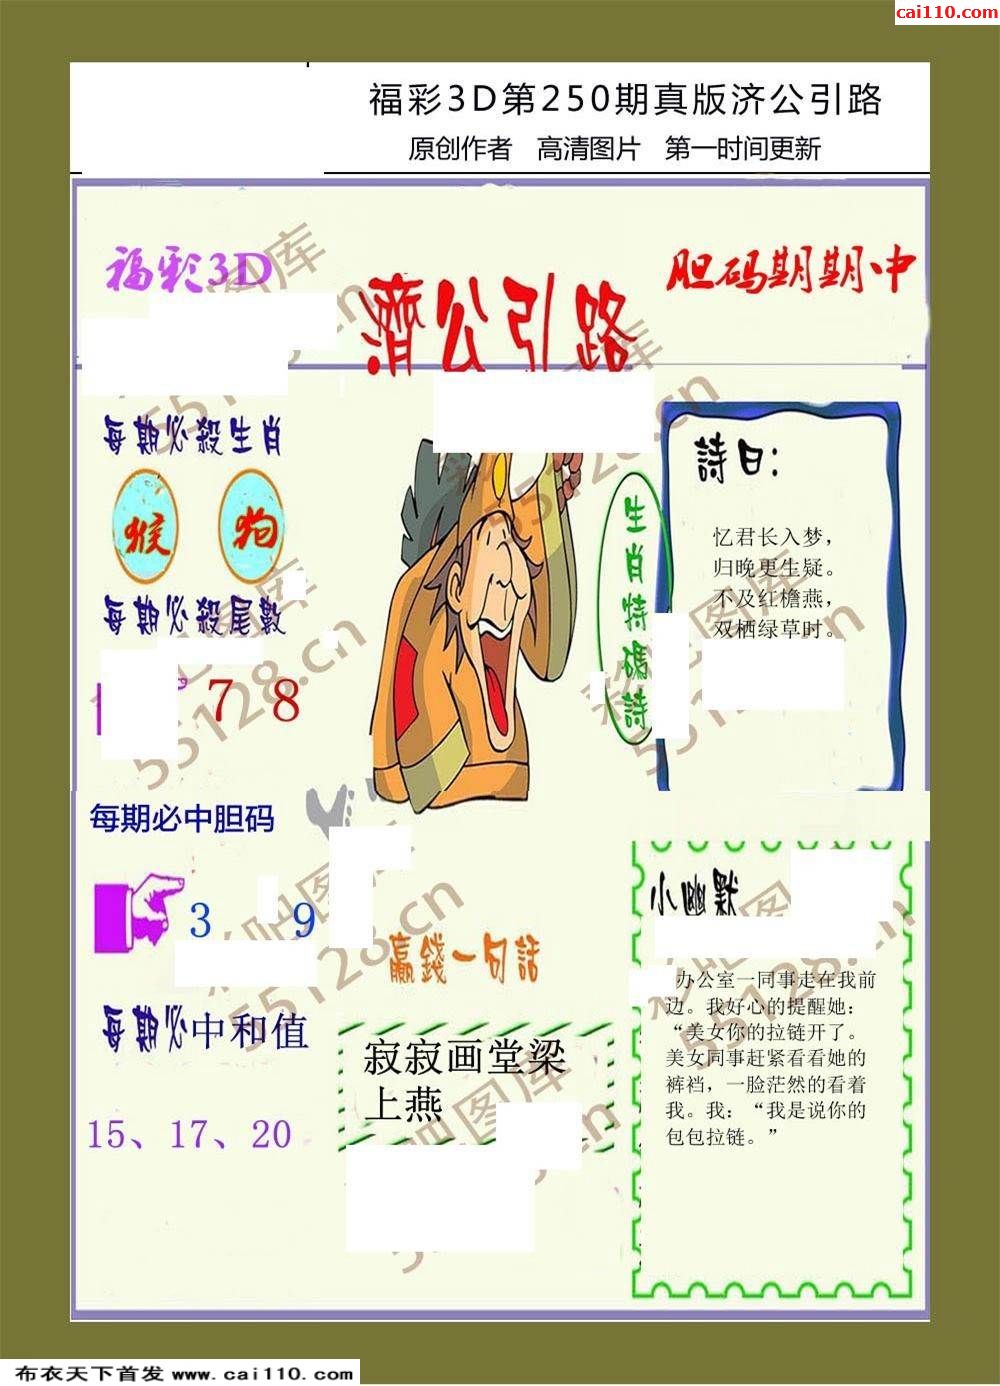 cai110.com
福彩3D第250期真版济公引路
原创作者 高清图片 第一时间更新
福彩3D
濟公引路
胆码期期中
每期必殺生肖
猴 狗
每期必殺尾數
7 8
生肖特碼詩
詩曰:
忆君长入梦，
归晚更生疑。
不及红檐燕，
双栖绿草时。
每期必中胆码
3 9
每期必中和值
15、17、20
贏錢一句話
寂寂画堂梁
上燕
小幽默
办公室一同事走在我前
边。我好心的提醒她：
“美女你的拉链开了。
美女同事赶紧看看她的
裤裆，一脸茫然的看着
我。我：“我是说你的
包包拉链。”
彩吧图库
55128.cn
布衣天下首发 www.cai110.com